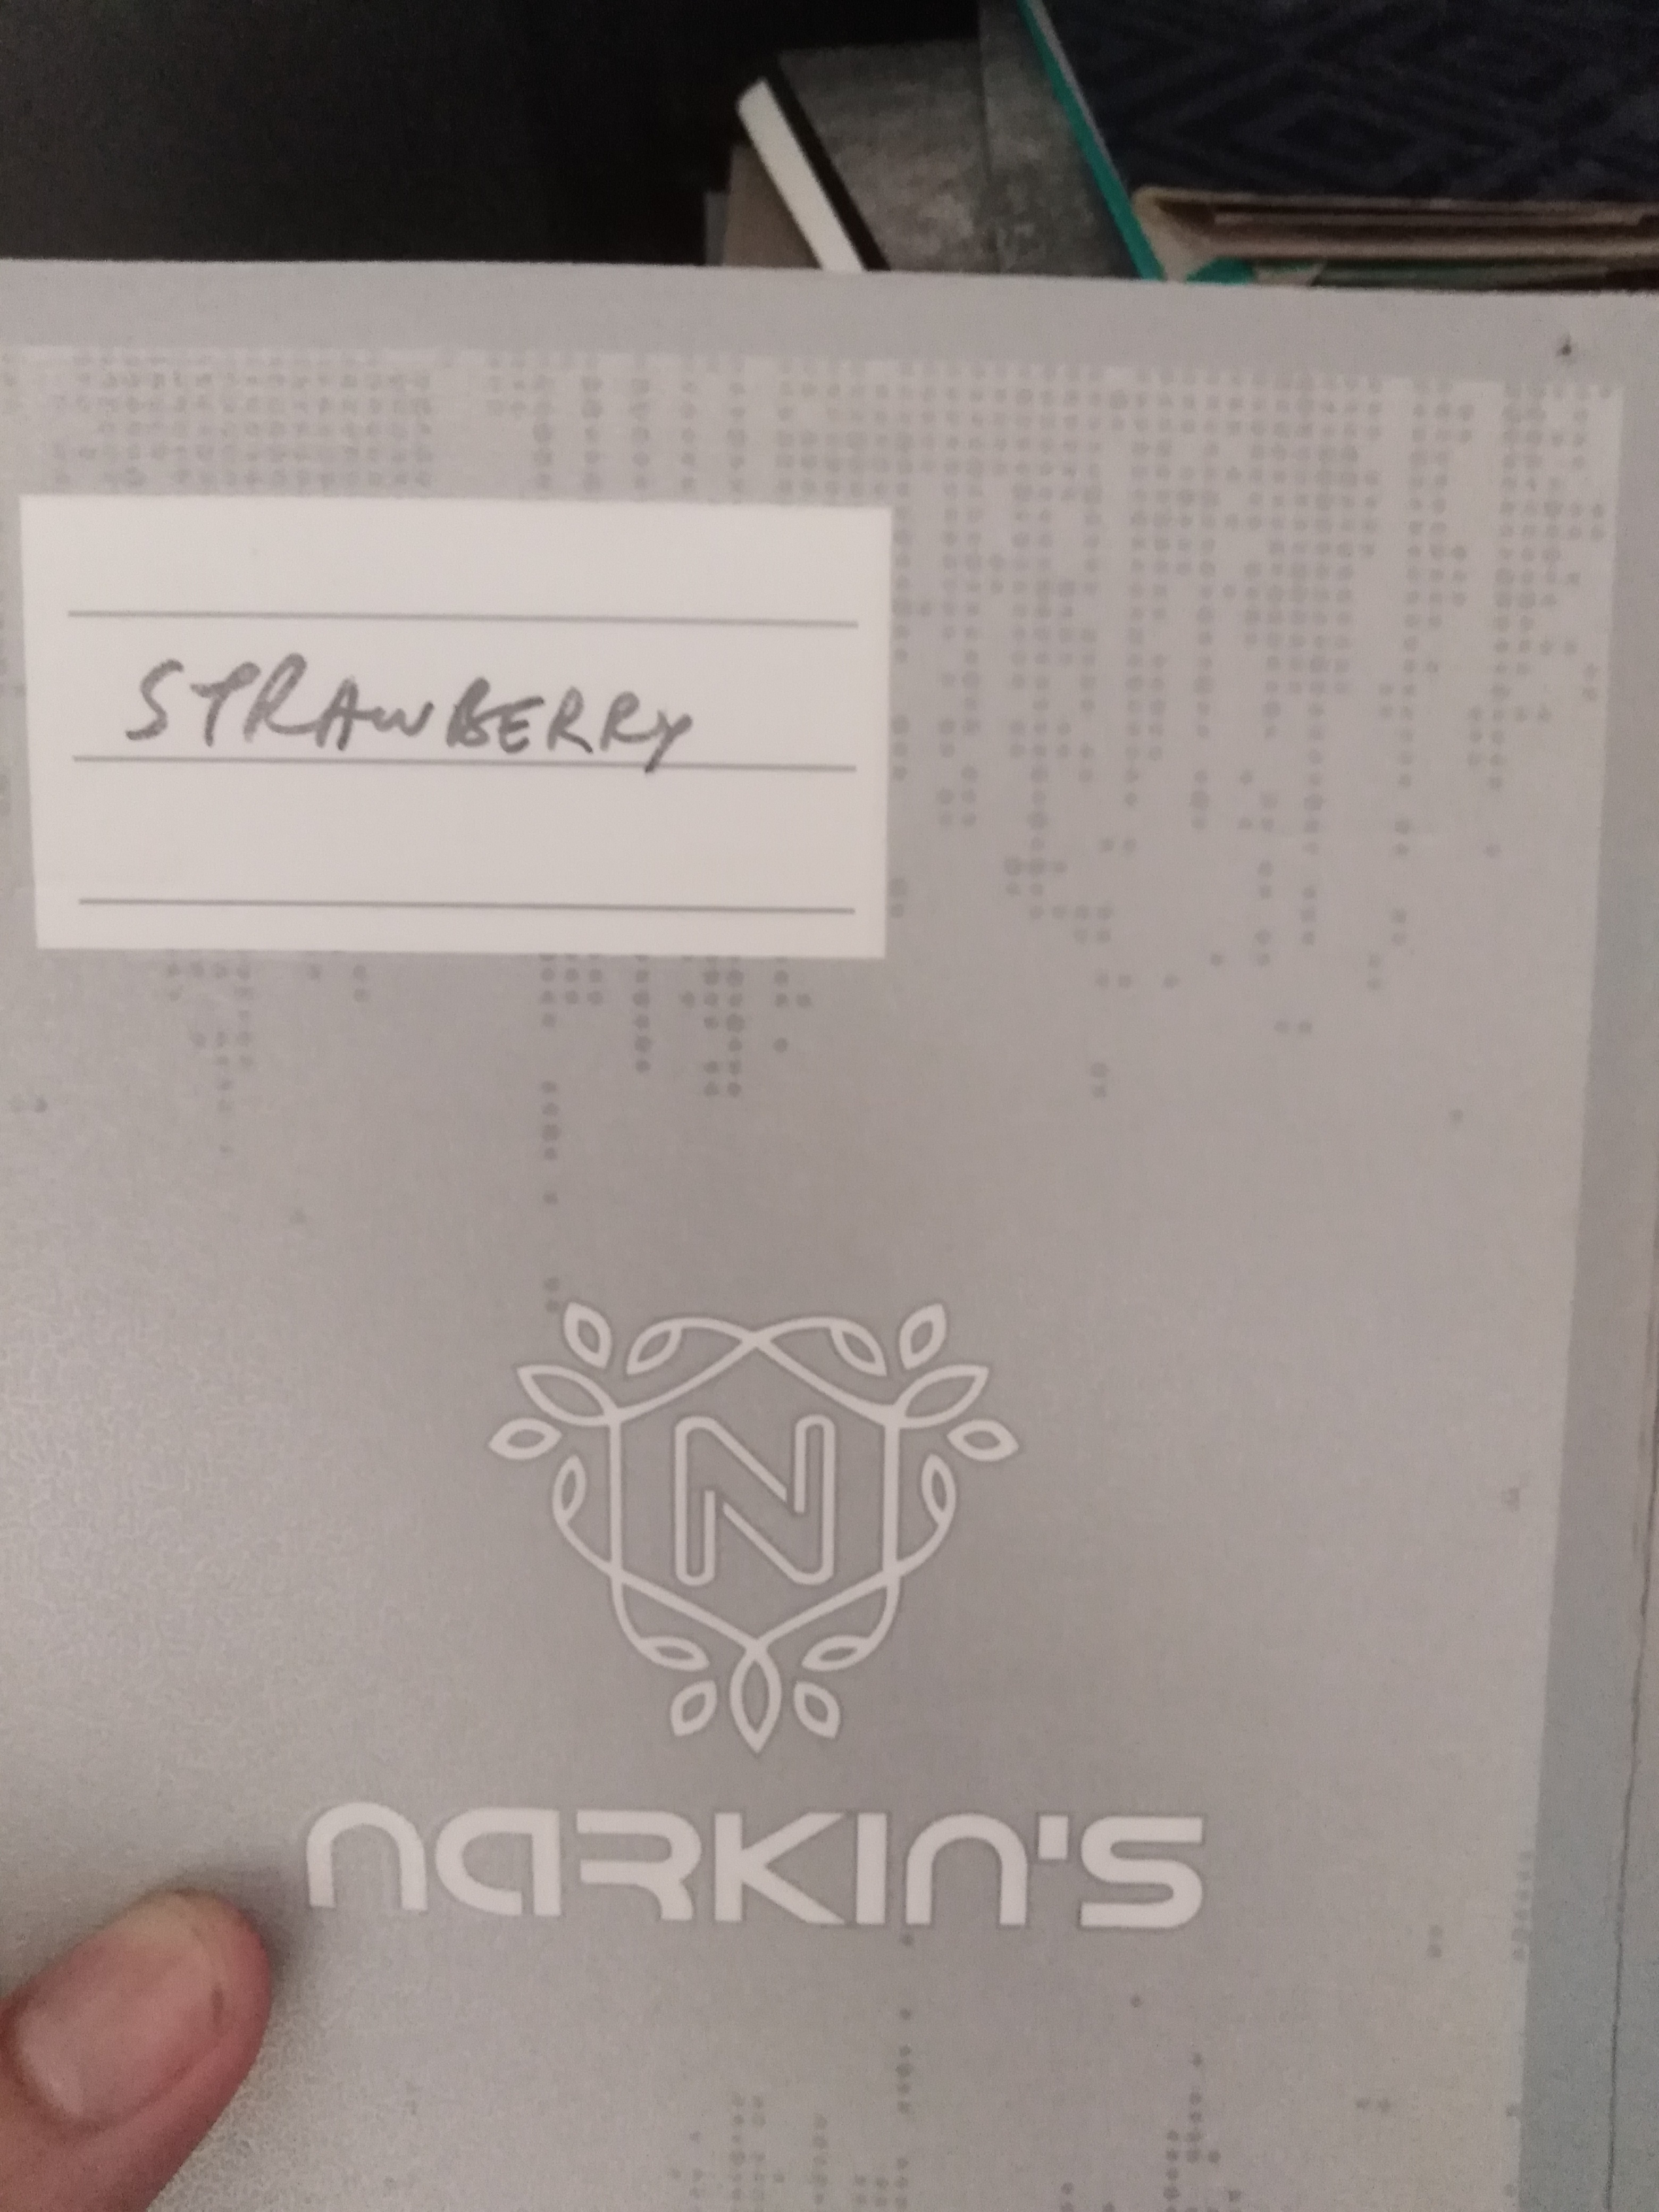 STRAWBERRY
N
NARKIN'S